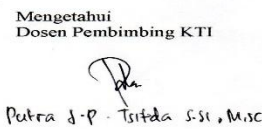 Mengetahui
Dosen Pembimbing KTI
Putra J.P. Tsitda S.Si, M.Sc